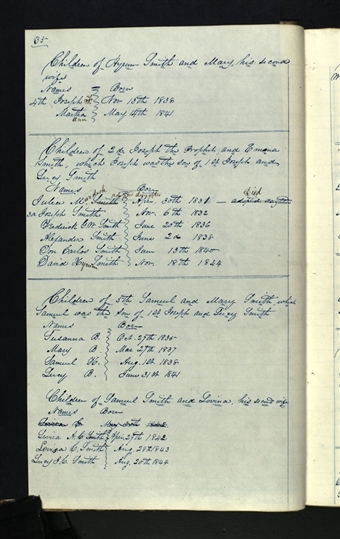 65
Children of Hyrum Smith and Mary his second
wife
Names = Born
4th Joseph Nov 13th 1838
Martha Ann May 14th 1841
Children of 2d Joseph the Prophet and Emma
Smith, which Joseph was the son of 1st Joseph and
Lucy Smith
Names Born
Julia M. Smith April 30th 1831 — adopted
3d Joseph Smith Nov. 6th 1832
Frederick G. W. Smith June 20th 1836
Alexander Smith June 2d 1838
Don Carlos Smith June 13th 1840
David Hyrum Smith Nov. 18th 1824
Children of 5th Samuel and Mary Smith which
Samuel was the son of 1st Joseph and Lucy Smith
Names Born
Susanna B. Oct. 27th 1835
Mary B. Mar 27th 1837
Samuel H. Aug 1st 1838
Lucy B. June 31st 1841
Children of Samuel Smith and Levina, his second wife
Names Born
Levira A. C. Smith Apr 29th 1842
Levina C. Smith Aug. 28th 1843
Lucy J. C. Smith Aug. 20th 1844